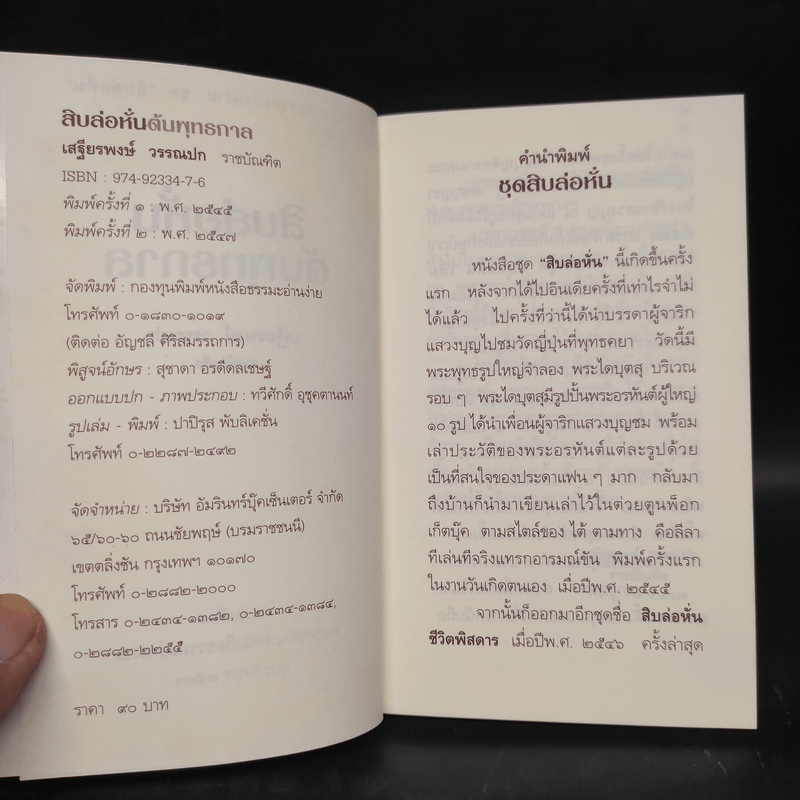 สิบล่อหั่นต้นพุทธกาล
เสฐียรพงษ์ วรรณปก ราชบัณฑิต
ISBN : 974-92334-7-6
พิมพ์ครั้งที่ ๑ : พ.ศ. ๒๕๔๕
พิมพ์ครั้งที่ ๒ : พ.ศ. ๒๕๔๗
จัดพิมพ์ : กองทุนพิมพ์หนังสือธรรมะอ่านง่าย
โทรศัพท์ ๐-๑๘๓๐-๑๐๑๙
(ติดต่อ อัญชลี ศิริสมรรถการ)
พิสูจน์อักษร : สุชาดา อรดีดลเชษฐ์
ออกแบบปก - ภาพประกอบ : ทวีศักดิ์ อุชุคตานนท์
รูปเล่ม - พิมพ์ : ปาปิรุส พับลิเคชั่น
โทรศัพท์ ๐-๒๒๘๗-๒๔๙๒
จัดจำหน่าย : บริษัท อัมรินทร์บุ๊คเซ็นเตอร์ จำกัด
๖๕/๖๐-๖๐ ถนนชัยพฤษ์ (บรมราชชนนี)
เขตตลิ่งชัน กรุงเทพฯ ๑๐๑๗๐
โทรศัพท์ ๐-๒๘๘๒-๒๐๐๐
โทรสาร ๐-๒๔๓๔-๑๓๘๒, ๐-๒๔๓๔-๑๓๘๔,
๐-๒๘๘๒-๒๒๕๕
ราคา ๙๐ บาท
คำนำพิมพ์
ชุดสิบล่อหั่น
หนังสือชุด “สิบล่อหั่น” นี้เกิดขึ้นครั้ง
แรก หลังจากได้ไปอินเดียครั้งที่เท่าไรจำไม่
ได้แล้ว ไปครั้งที่ว่านี้ได้นำบรรดาผู้จาริก
แสวงบุญไปชมวัดญี่ปุ่นที่พุทธคยา วัดนี้มี
พระพุทธรูปใหญ่จำลอง พระไดบุตสุ บริเวณ
รอบ ๆ พระไดบุตสุมีรูปปั้นพระอรหันต์ผู้ใหญ่
๑๐ รูป ได้นำเพื่อนผู้จาริกแสวงบุญชม พร้อม
เล่าประวัติของพระอรหันต์แต่ละรูปด้วย
เป็นที่สนใจของประดาแฟน ๆ มาก กลับมา
ถึงบ้านก็นำมาเขียนเล่าไว้ในต่วยตูนพ็อก
เก็ตบุ๊ค ตามสไตล์ของ ไต้ ตามทาง คือลีลา
ทีเล่นทีจริงแทรกอารมณ์ขัน พิมพ์ครั้งแรก
ในงานวันเกิดตนเอง เมื่อปีพ.ศ. ๒๕๔๕
จากนั้นก็ออกมาอีกชุดชื่อ สิบล่อหั่น
ชีวิตพิสดาร เมื่อปีพ.ศ. ๒๕๔๖ ครั้งล่าสุด